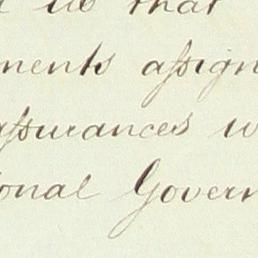 us that
ments assign
assurances w
onal Govern